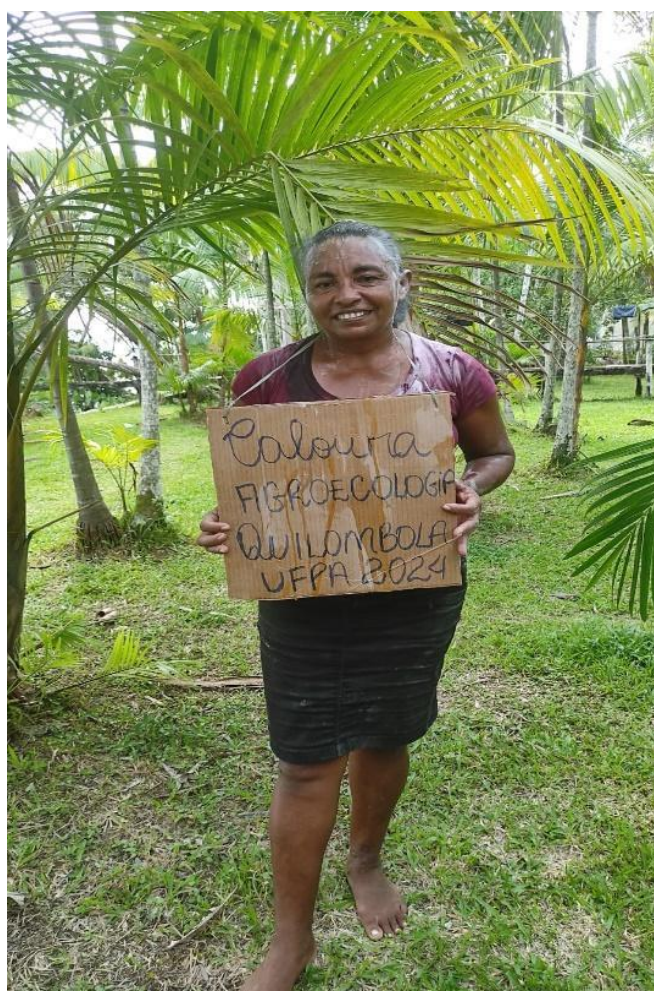 Caloura
AGROECOLOGIA
QUILOMBOLA
UFPA 2024